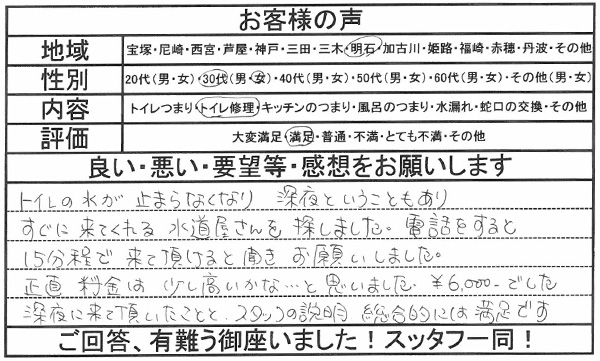 お客様の声
地域 宝塚・尼崎・西宮・芦屋・神戸・三田・三木・明石・加古川・姫路・福崎・赤穂・丹波・その他
性別 20代(男・女)・30代(男・女)・40代(男・女)・50代(男・女)・60代(男・女)・その他(男・女)
内容 トイレつまり・トイレ修理・キッチンのつまり・風呂のつまり・水漏れ・蛇口の交換・その他
評価 大変満足・満足・普通・不満・とても不満・その他
良い・悪い・要望等・感想をお願いします
トイレの水が 止まらなくなり 深夜ということもあり
すぐに 来てくれる 水道屋さんを 探しました。電話をすると
15分程で 来て頂けると聞き お願いしました。
正直 料金は 少し高いかな…と思いました。¥6,000-でした
深夜に来て頂いたことと、スタッフの説明 総合的には満足です
ご回答、有難う御座いました！スッタフ一同！